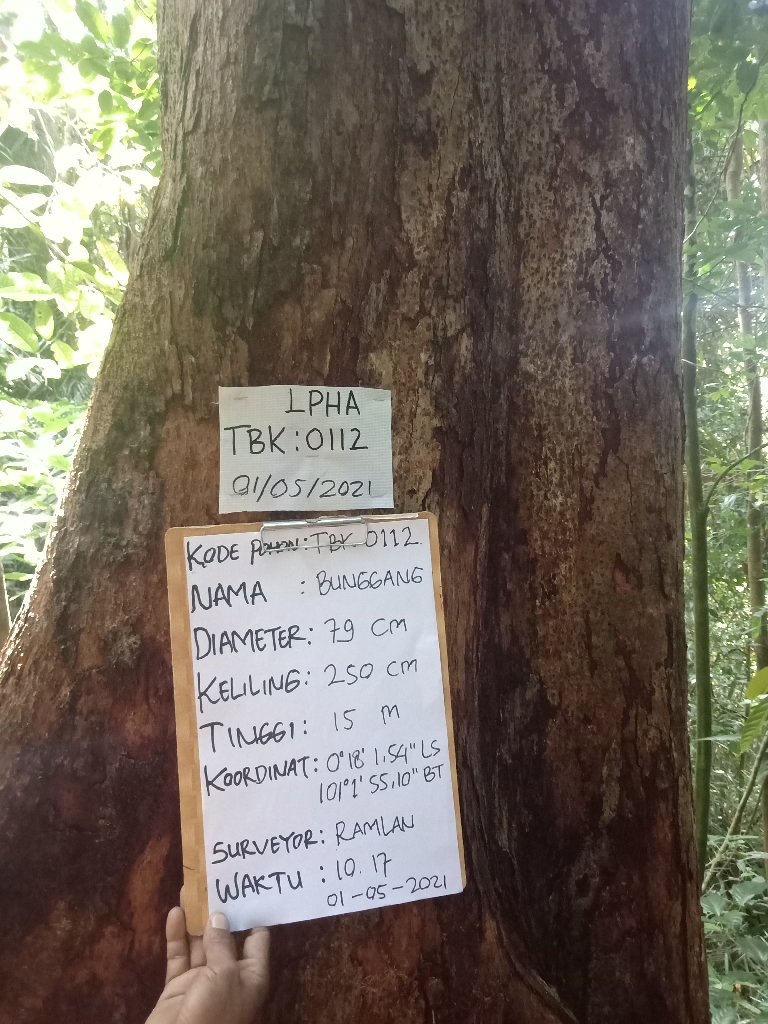 LPHA
TBK:0112
01/05/2021
KODE POHON:TBK 0112
NAMA : BUNGGANG
DIAMETER: 79 CM
KELILING: 250 CM
TINGGI: 15 M
KOORDINAT: 0°18' 1.54" LS
101°1' 55,10" BT
SURVEYOR: RAMLAN
WAKTU : 10.17
01-05-2021